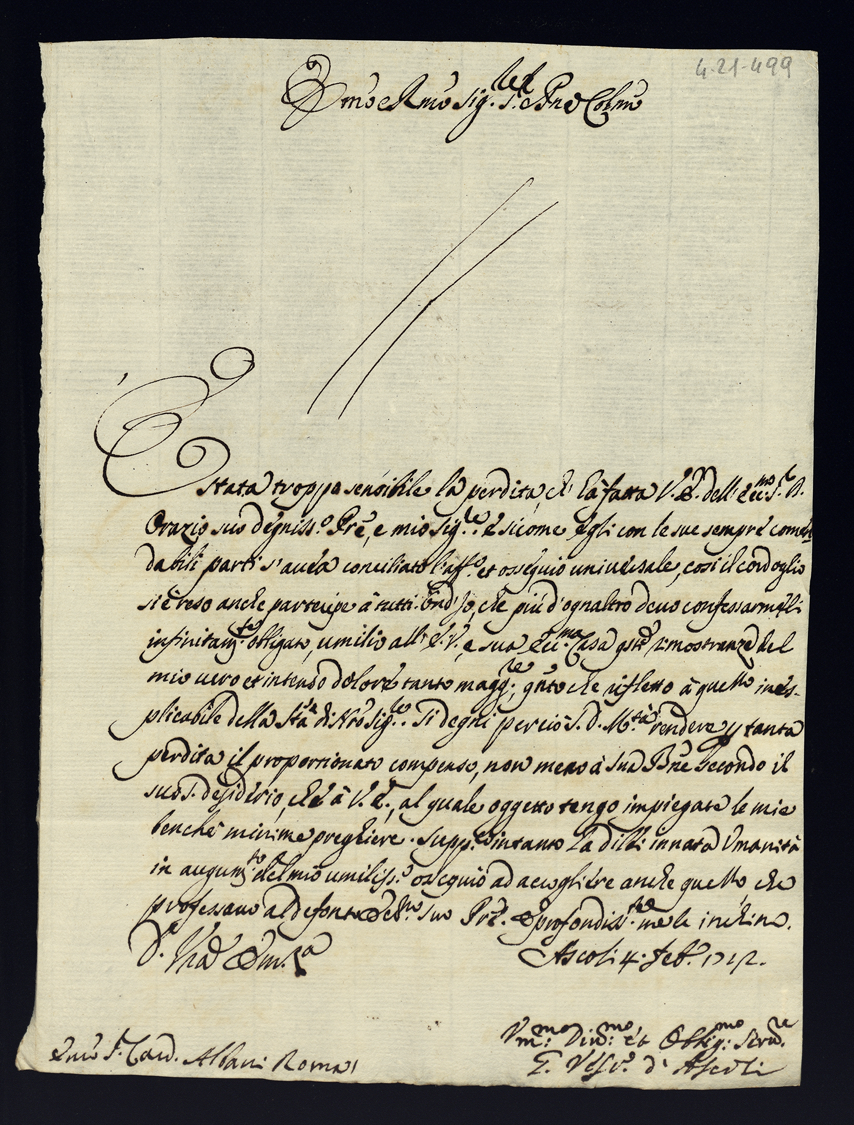 4-21-499
Emo e Rmo Sig.r S.r e Pne Colmo
E Stata troppo sensibile la perdita, ch' hà fatta V.E. dell' Ecc.mo S.r D.
Orazio suo degniss.o Pre, e mio Sig.re. E sicome egli con le sue sempre comen
dabili parti s'avea conciliato l'aff.o et ossequio universale, così il cordoglio
si è reso anche partecipe à tutti: ond'Io, che più d'ognaltro devo confessarmegli
infinitam.te obligato, umilio all' E.V., e sua Ecc.ma Casa q.ste dimostranze del
mio vero et intenso dolore tanto magg.re, q.nto che rifletto à quello ines-
plicabile della S.tà di Nro Sig.re. Si degni perciò S. D. M.tà rendere p tanta
perdita il proporzionato compenso, non meno à Sua Bne secondo il
suo S. desiderio, che à V.E., al quale oggetto tengo impiegate le mie
benche minime preghiere. Supp.co intanto la di lei innata Umanità
in augum.to del mio umiliss.o ossequio ad accogliere anche quello che
professavo al defonto Ecc.mo suo Pre. E profondiss.te me le inchino.
D. Vra Em.za
Ascoli 4. Feb.o 1712.
Um.mo Div.mo et Oblig.mo Serv.re
G. Vesc.o d'Ascoli
Emo S.r Card. Albani Roma